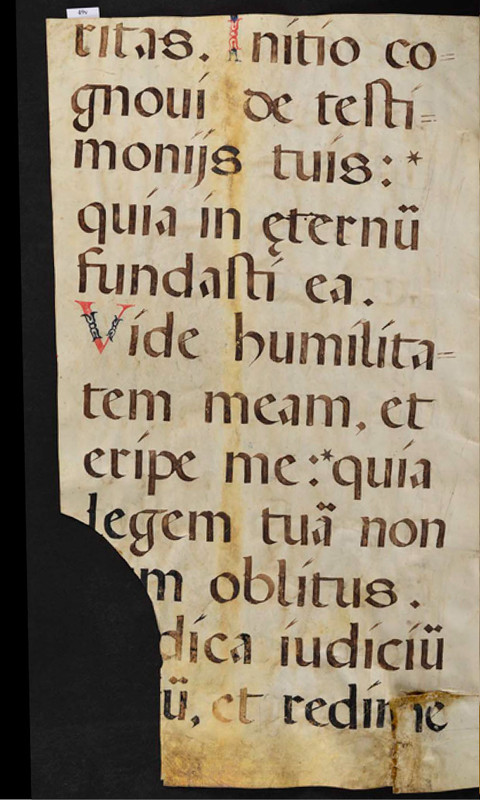 ritas. Initio co=
gnoui de testi=
monijs tuis:*
quia in ęternū
fundasti ea.
Vide humilita=
tem meam, et
eripe me:*quia
legem tuā non
m oblitus.
dica iudiciū
ū, et redime